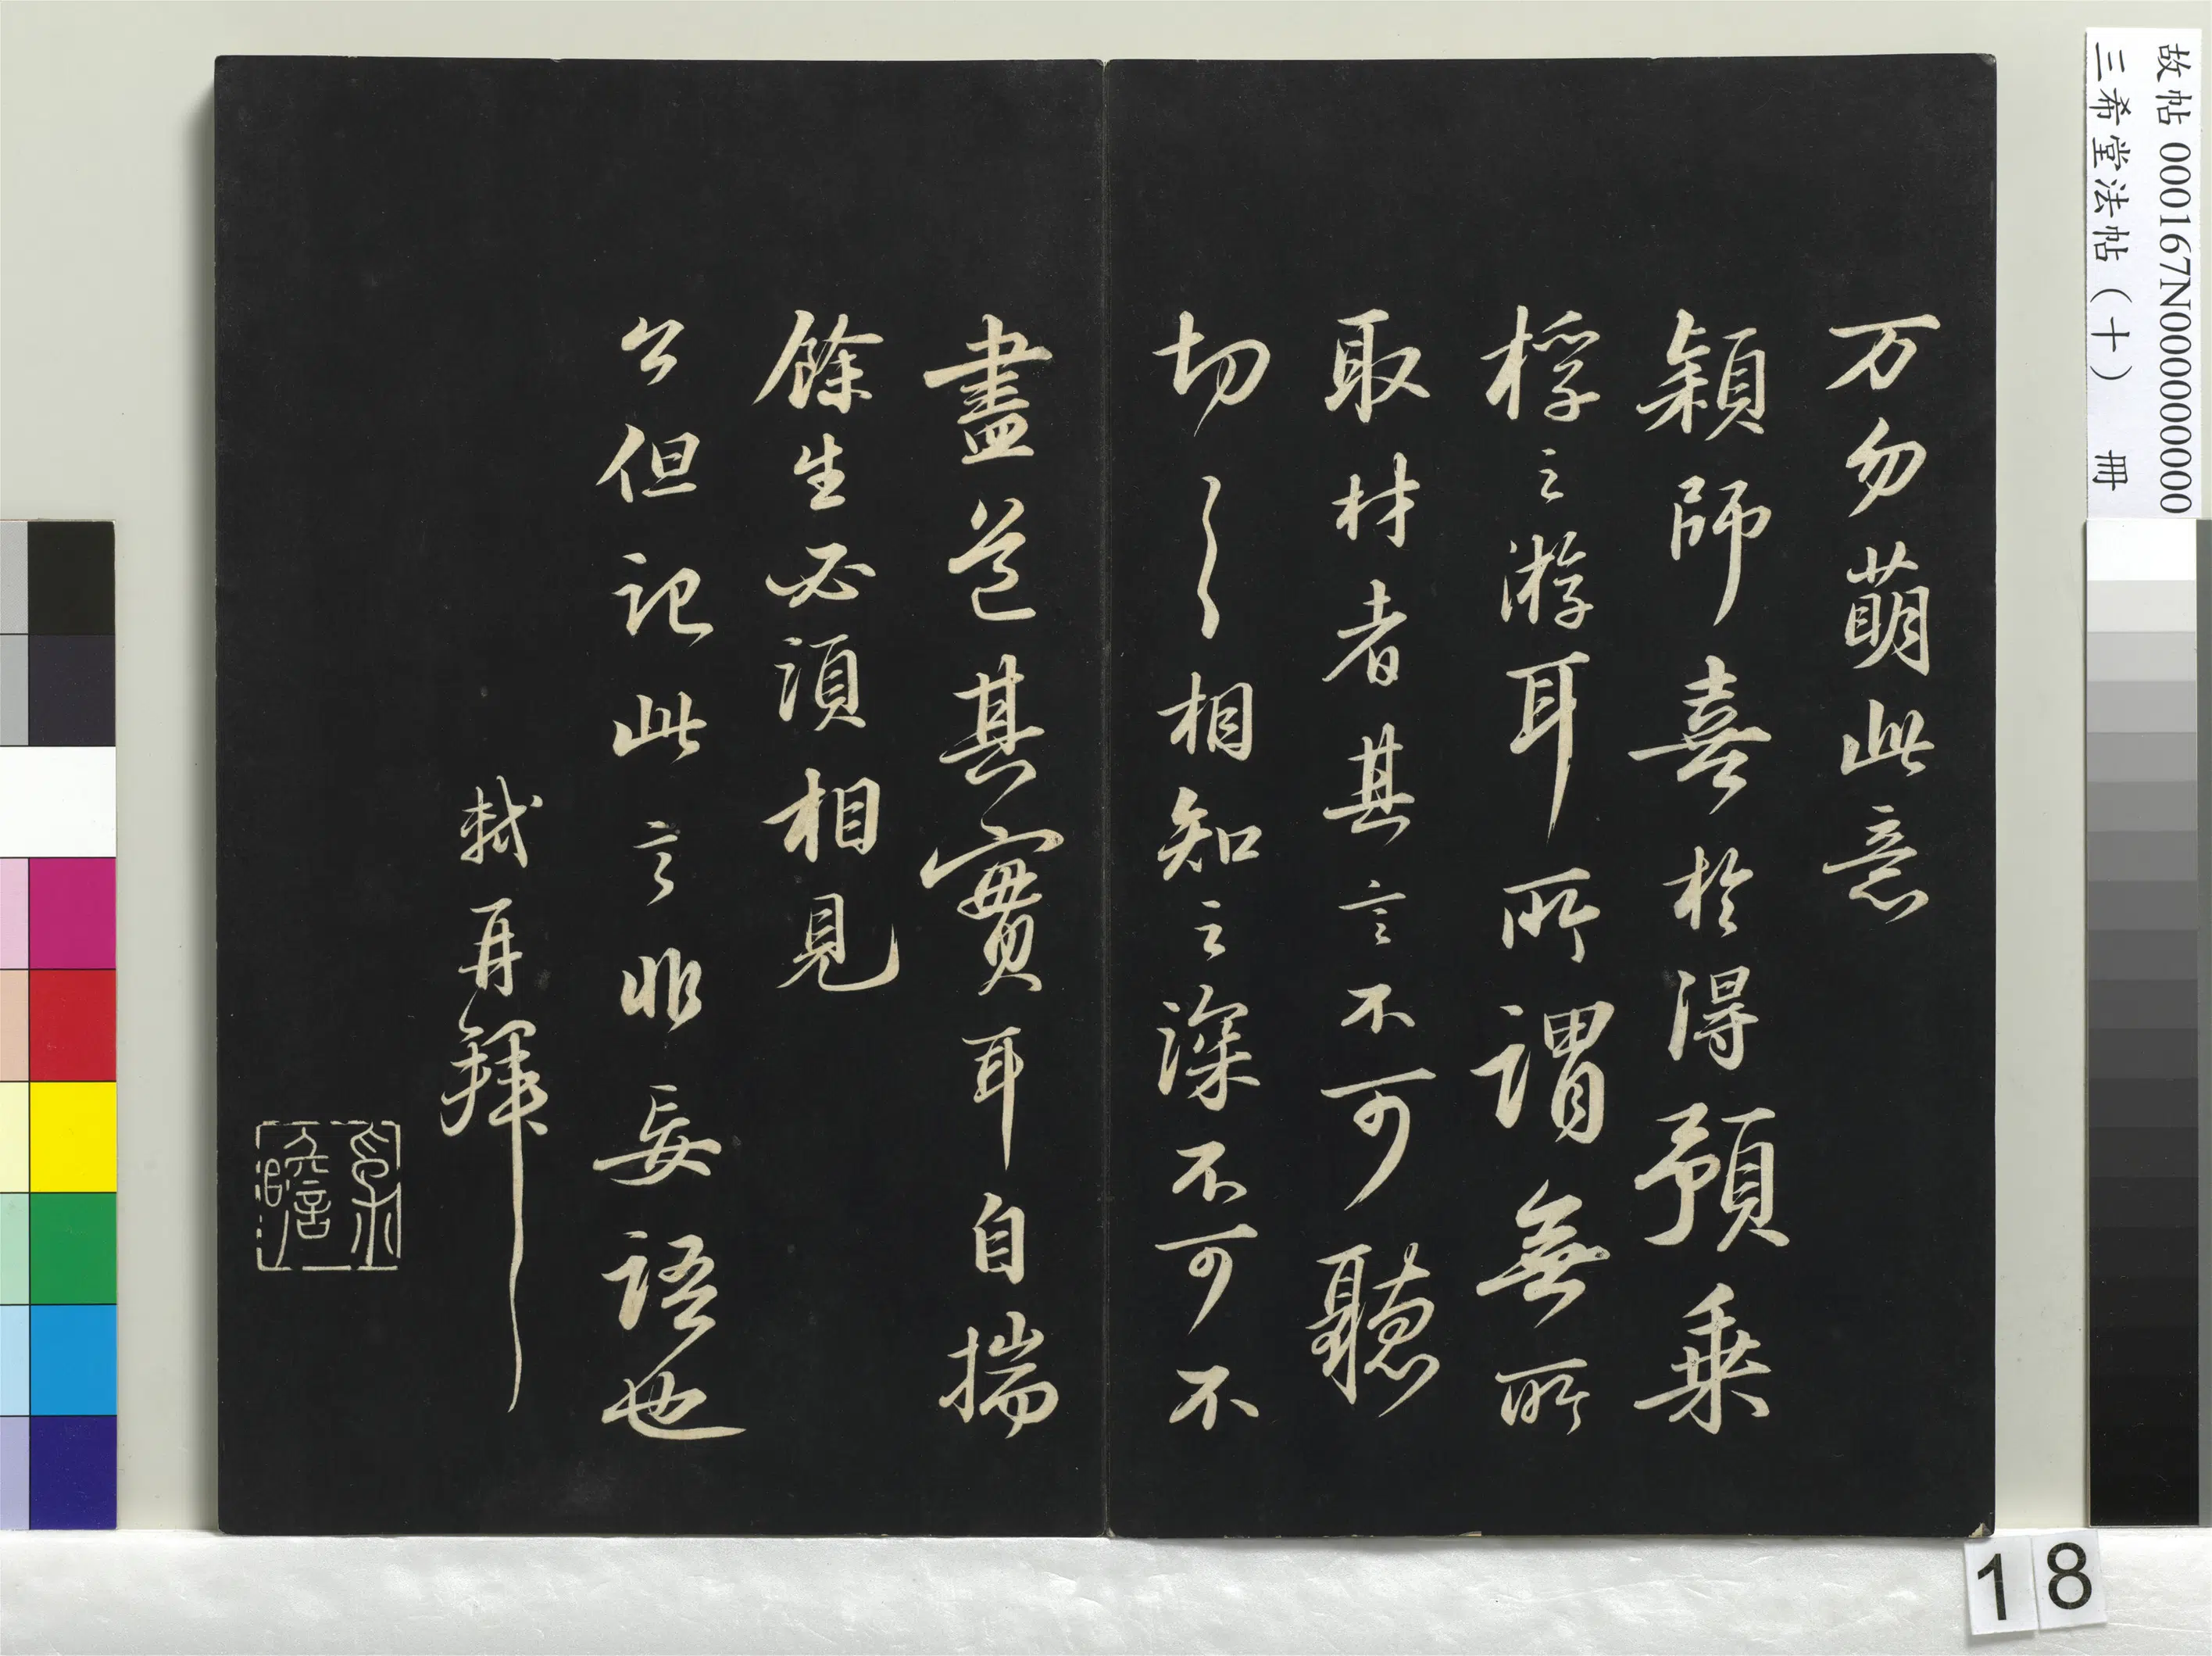 万勿萌此意
穎師喜於得預乗
桴之游耳所謂無所
取材者其言不可聽
切〻相知之深不可不
盡道其實耳自揣
餘生必須相見
公但記此言非妄語也
軾再拜
故帖 000167N000000000
三希堂法帖（十） 冊
18